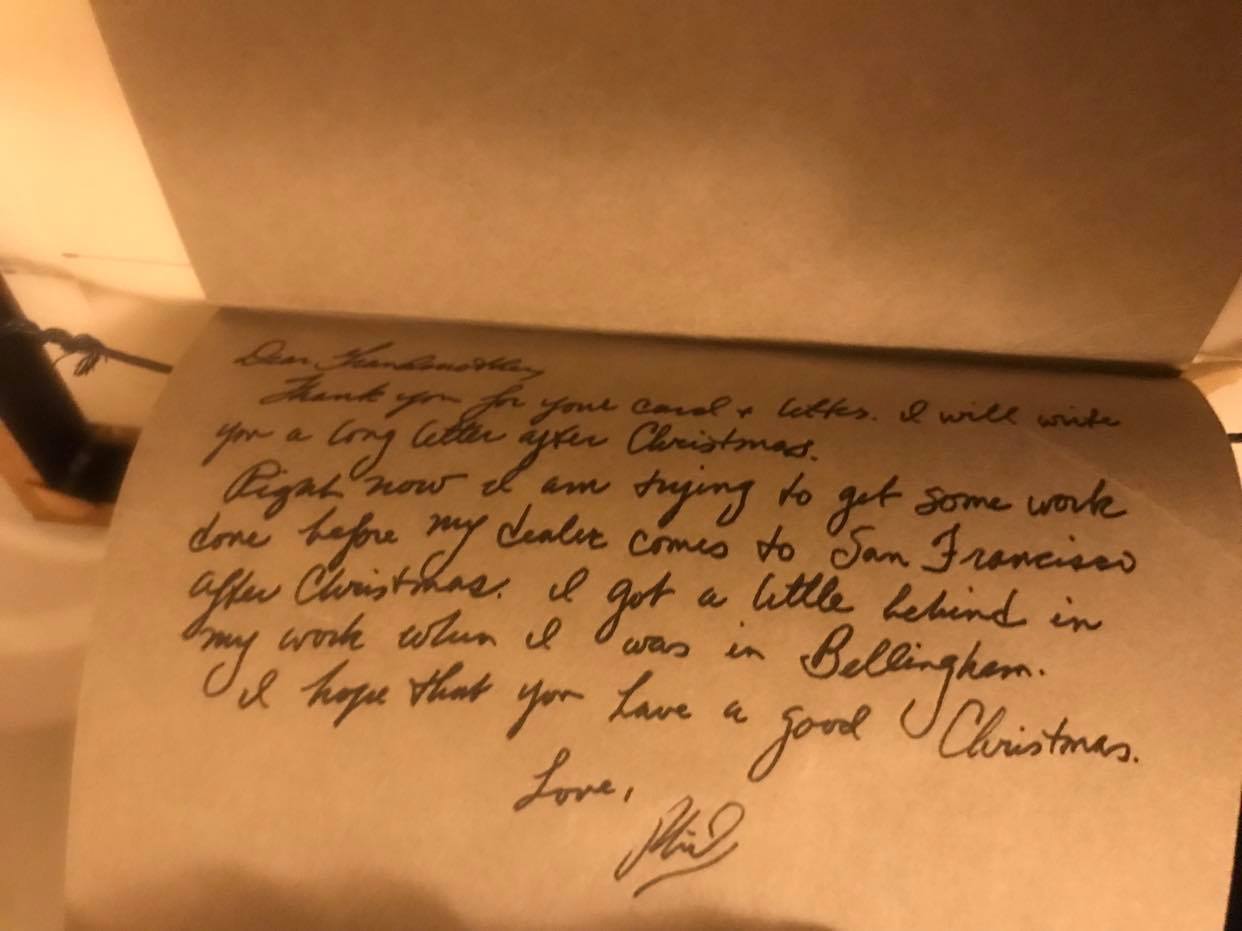 Dear Grandmother,
Thank you for your card + letter. I will write
you a long letter after Christmas.
Right now I am trying to get some work
done before my dealer comes to San Francisco
after Christmas. I got a little behind in
my work when I was in Bellingham.
I hope that you have a good Christmas.
Love,
Phil